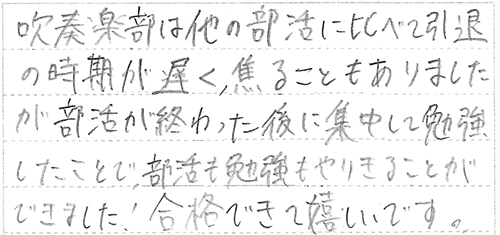 吹奏楽部は他の部活に比べて引退
の時期が遅く、焦ることもありました
が部活が終わった後に集中して勉強
したことで、部活も勉強もやりきることが
できました！合格できて嬉しいです。